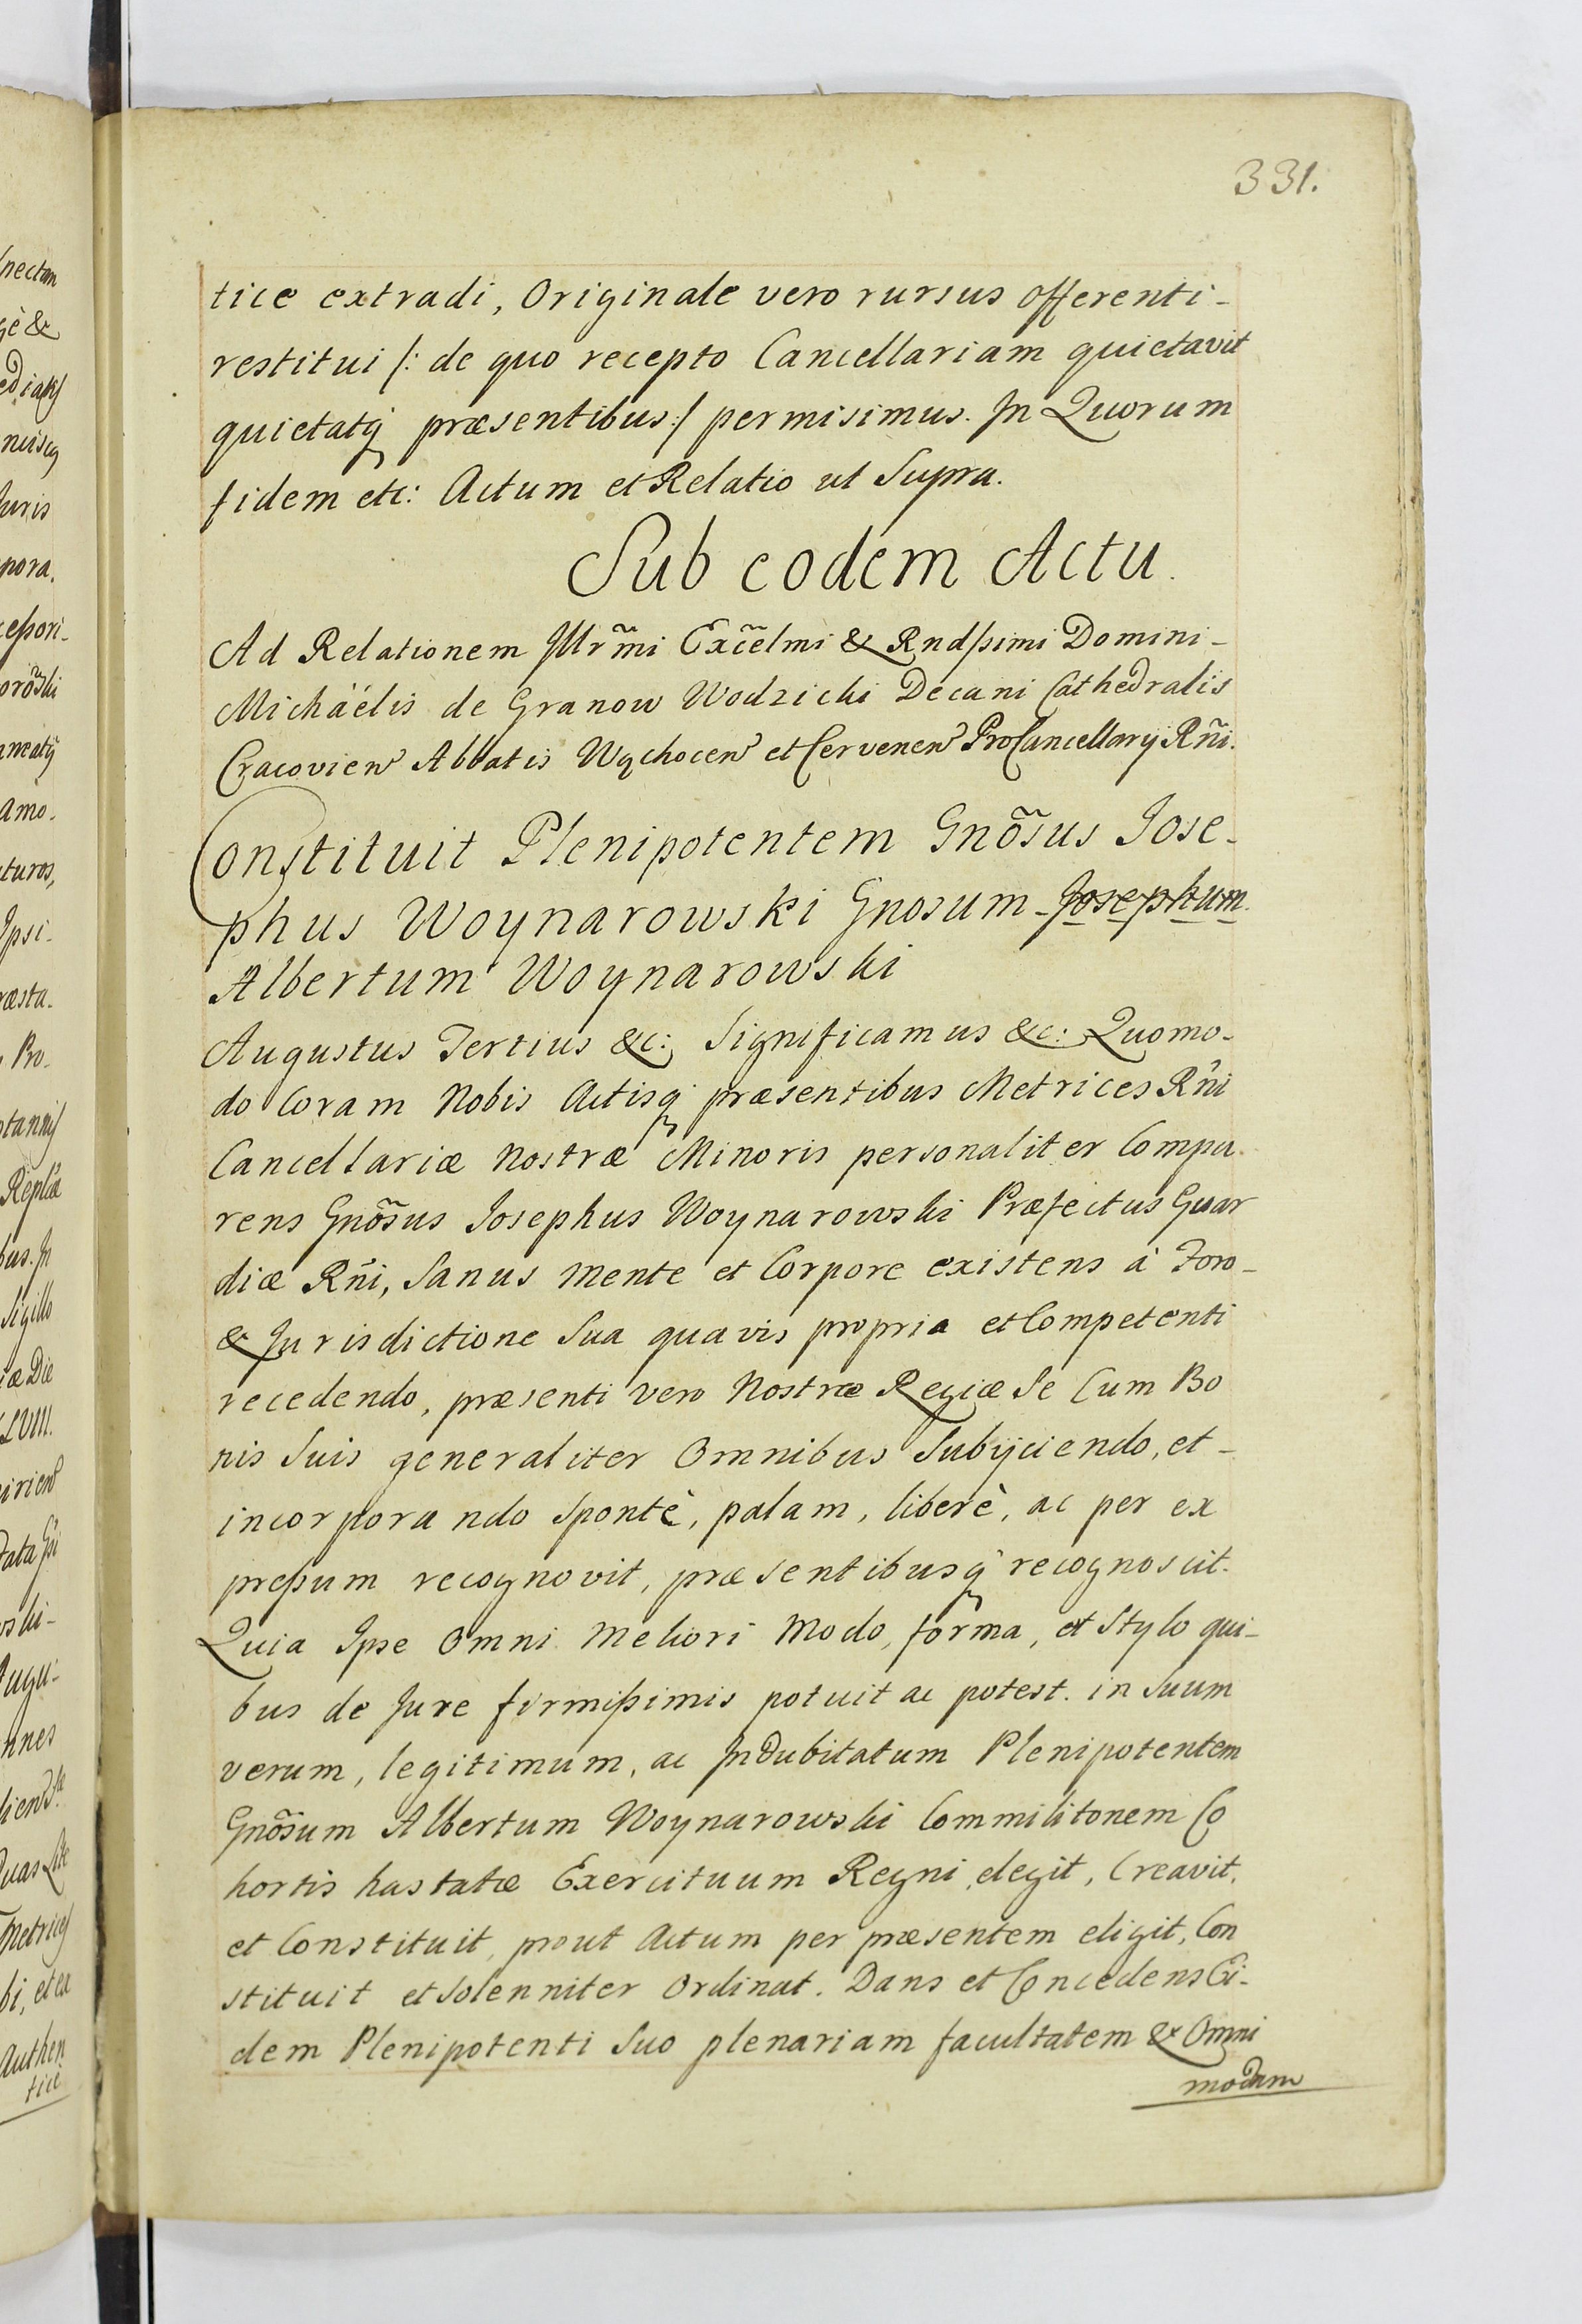 331.
tice extradi, Originale vero rursus offerenti-
restitui /: de quo recepto Cancellariam quietavit
quietatq̨ præsentibus :/ permisimus. In Quorum
fidem etc: Actum et Relatio ut Supra.
Sub eodem Actu.
Ad Relationem Illrm̃i Exc̃elmi & Rndßimi Domini-
Michäélis de Granow Wodzicki Decani Cathedralis
Cracovien Abbatis Wąchocen et Cervenen ProCancellarij Rñi.
Constituit Plenipotentem Gnõsus Jose-
phus Woynarowski Gnosum - Josephum
Albertum Woynarowski
Augustus Tertius &c: Significamus &c: Quomo-
do Coram Nobis Actisq̨ præsentibus Metrices Rñi
Cancellariæ Nostræ Minoris personaliter Compa-
rens Gnõsus Josephus Woynarowski Præfectus Guar
diæ Rñi, Sanus Mente et Corpore existens à Foro-
& Jurisdictione Sua quavis propria et Competenti
recedendo, præsenti vero Nostræ Regiæ Se Cum Bo
nis Suis generaliter Omnibus Subijciendo, et-
incorporando Spontè, palam, liberè, ac per ex
preßum recognovit, præsentibusq̨ recognoscit.
Quia Ipse Omni Meliori Modo, forma, et Stylo qui-
bus de Jure firmißimis potuit ac potest. in Suum
verum, legitimum, ac Indubitatum Plenipotentem
Gnõsum Albertum Woynarowski Commilitonem Co
hortis hastatæ Exercituum Regni, elegit, Creavit,
et Constituit, prout Actum per præsentem eligit, Con
stituit et Solenniter Ordinat. Dans et Concedens Ei-
dem Plenipotenti Suo plenariam facultatem & Omni
modam